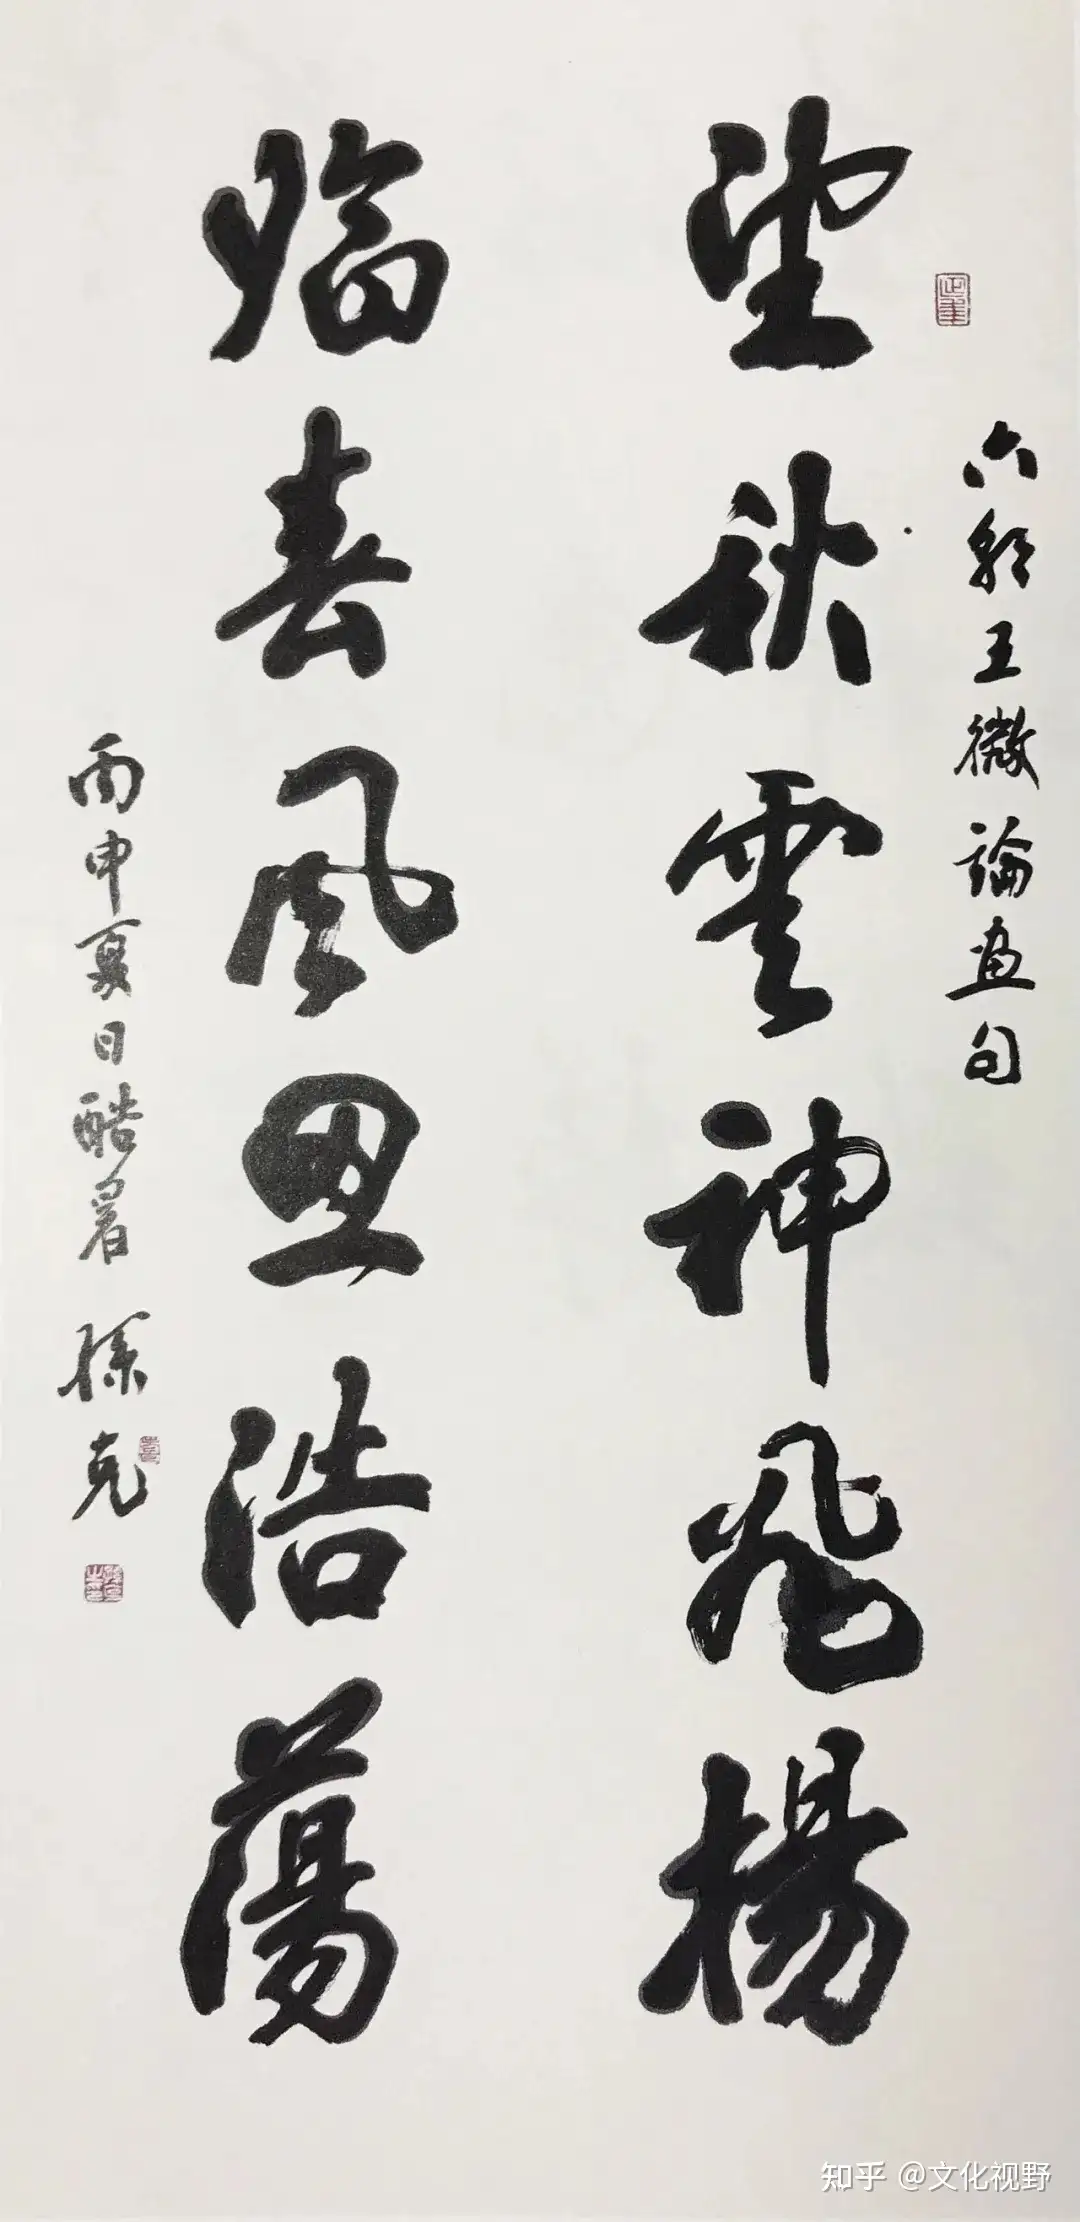 六朝王微論畫句
望秋雲神飛揚
臨春風思浩蕩
丙申夏日酷暑
孫克
知乎 @文化视野